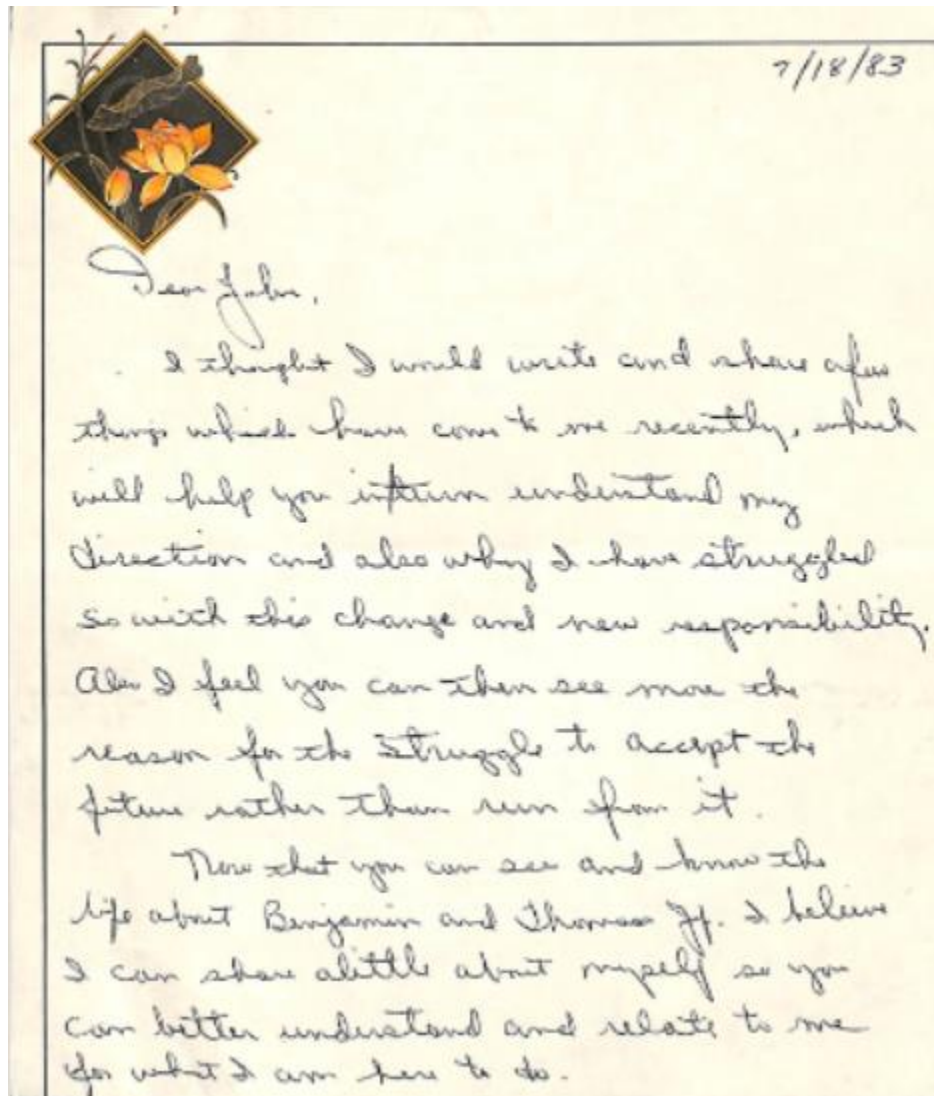 7/18/83
Dear John,
I thought I would write and share a few
things which have come to me recently, which
will help you in turn understand my
direction and also why I have struggled
so with this change and new responsibility.
Also I feel you can then see more the
reason for the struggle to accept the
future rather than run from it.
Now that you can see and know the
life about Benjamin and Thomas Jf. I believe
I can share alittle about myself so you
can better understand and relate to me
for what I am here to do.